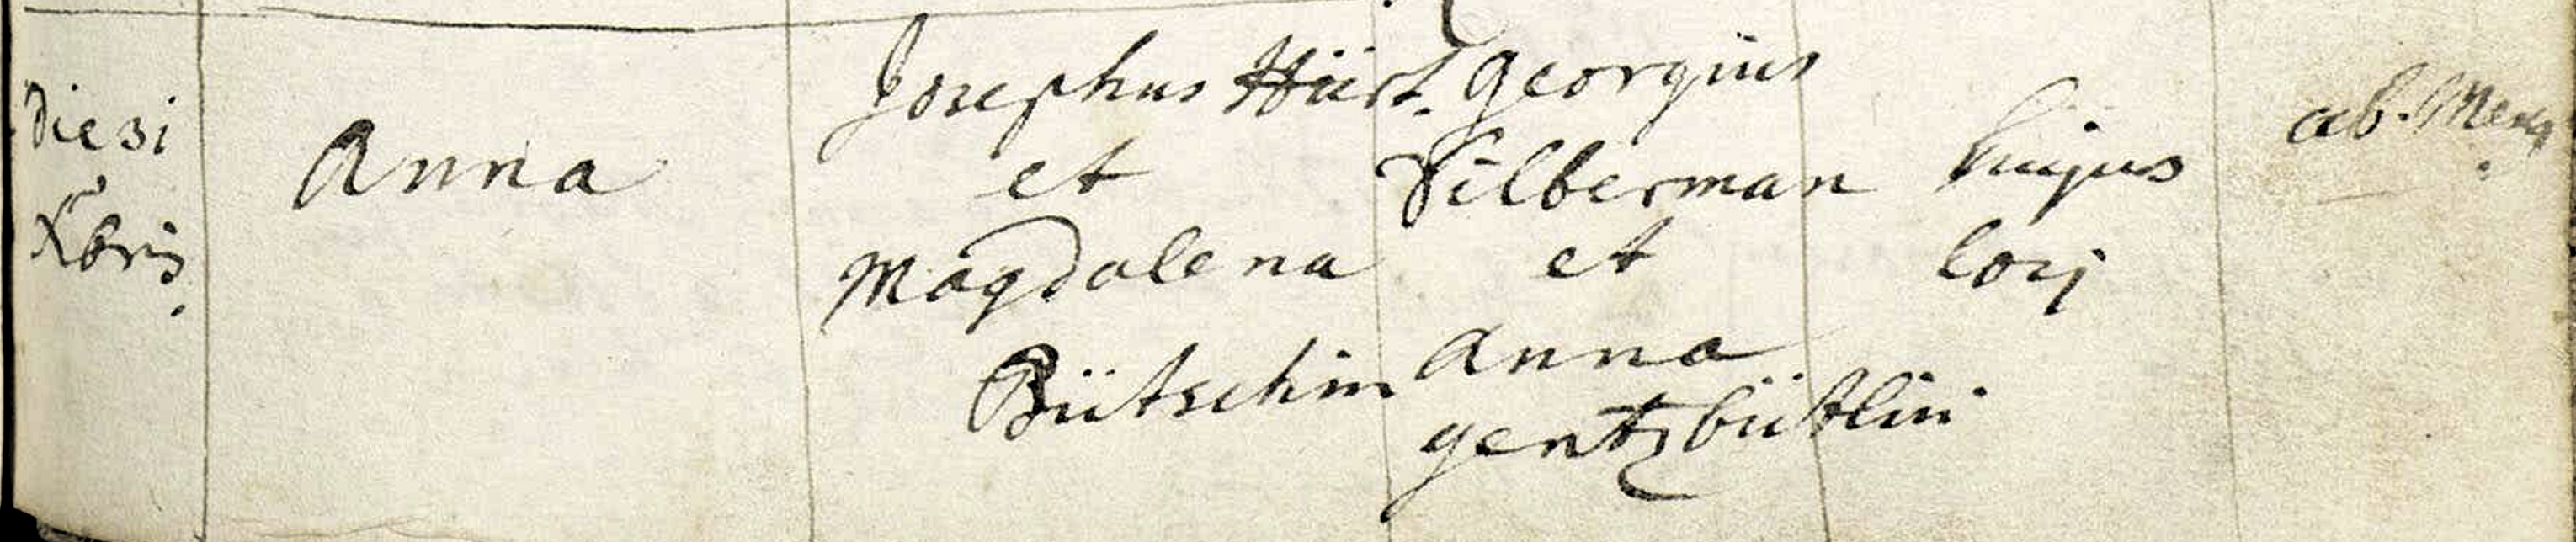 Die 31
Xbris.
Anna
Josephus Hürt.
et
Magdalena
Bütschin
Georgius
Silberman
et
Anna
gentzbütlin
hujus
locj